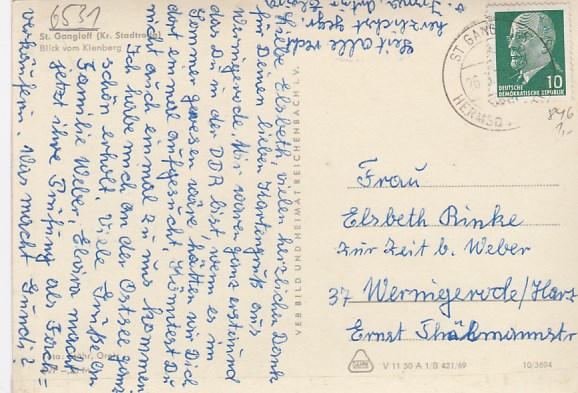 6531
St. Gangloff (Kr. Stadtroda)
Blick vom Kienberg
Liebe Elsbeth, vielen herzlichen Dank
für Deinen lieben Kartengruß aus
Wernigerode. Wir waren ganz erstaunt
daß Du in der DDR bist, wenn es im
Sommer gewesen wäre hätten wir Dich
dort einmal aufgesucht. Könntest Du
nicht auch einmal zu uns kommen
Ich habe mich an der Ostsee ganz
schön erholt. Viele Grüße an
Familie Weber.
jetzt ihre Prüfung als Fach=
verkäuferin. Was macht Gundi?
Seit alle recht
herzlichst gegr.
VEB BILD UND HEIMAT REICHENBACH i. V.
ST. GANG
HERMSD
DEUTSCHE
DEMOKRATISCHE REPUBLIK
10
846
1,-
Frau
Elsbeth Rinke
zur Zeit b. Weber
37 Wernigerode/Harz
Ernst Thälmannstr
V 11 50 A 1/B 421/69
10/3694